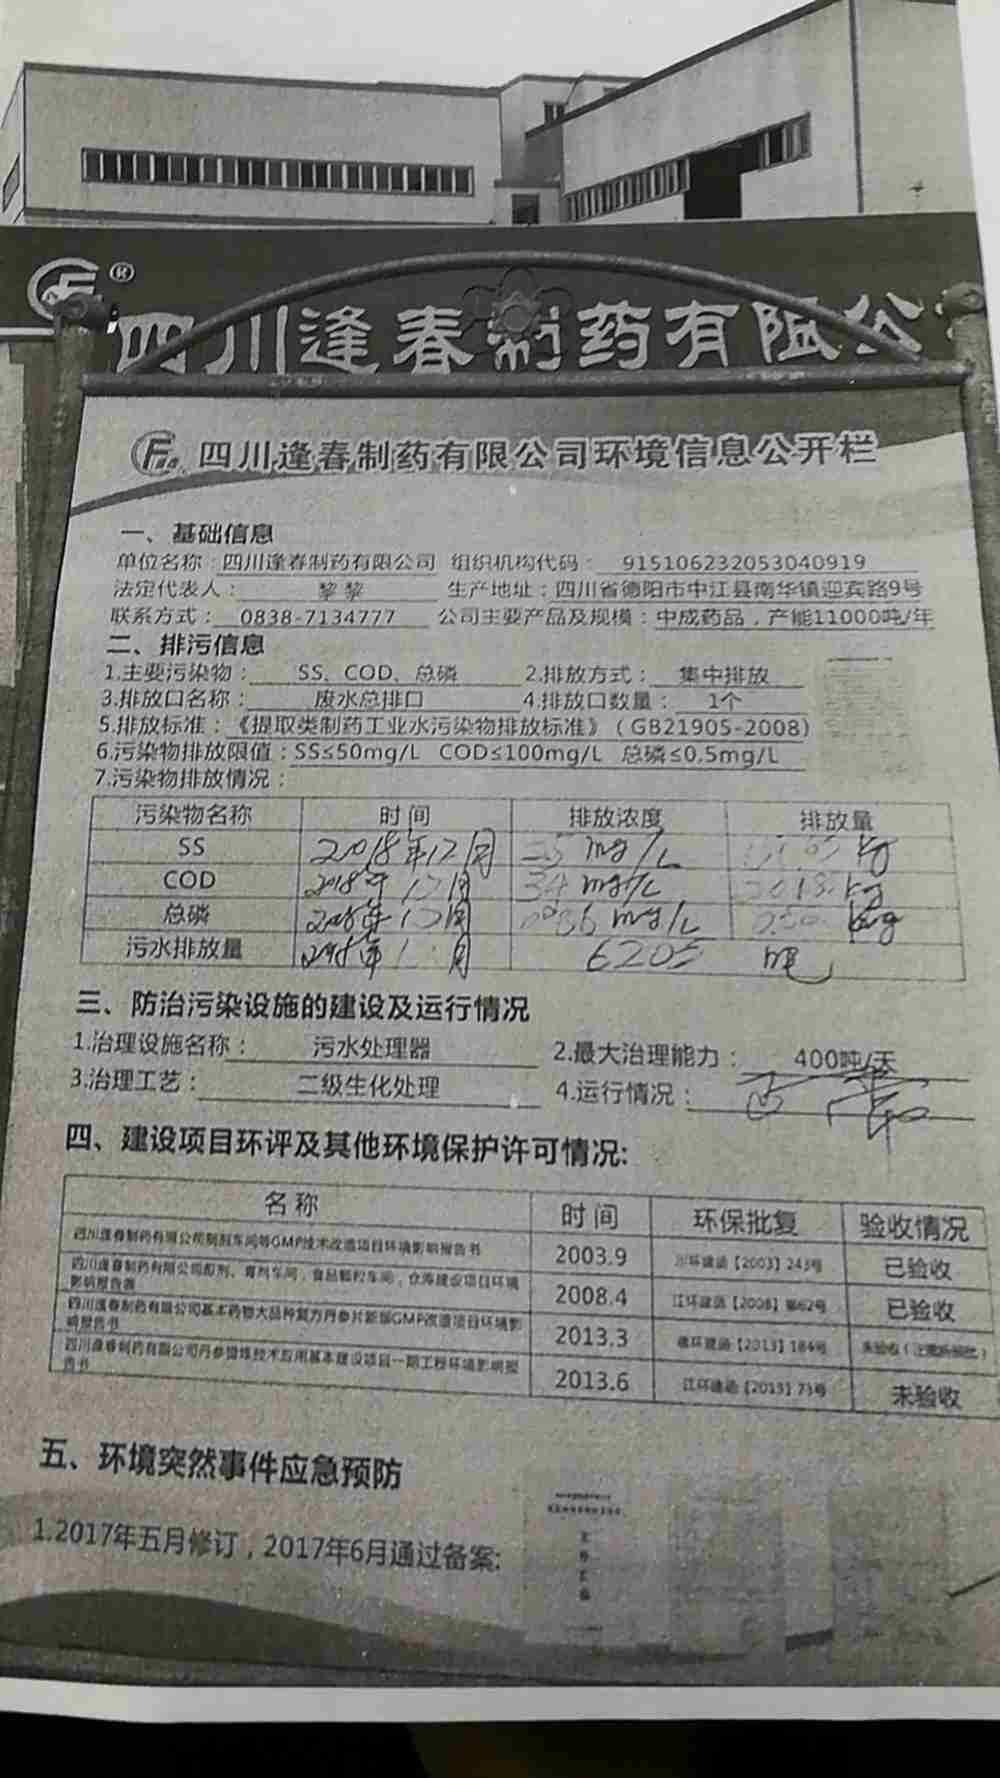 ®
四川逢春制药有限公
四川逢春制药有限公司环境信息公开栏
一、基础信息
单位名称：四川逢春制药有限公司 组织机构代码： 915106232053040919
法定代表人： 黎黎 生产地址：四川省德阳市中江县南华镇迎宾路9号
联系方式： 0838-7134777 公司主要产品及规模：中成药品，产能11000吨/年
二、排污信息
1.主要污染物： SS、COD、总磷 2.排放方式： 集中排放
3.排放口名称： 废水总排口 4.排放口数量： 1个
5.排放标准：《提取类制药工业水污染物排放标准》（GB21905-2008）
6.污染物排放限值：SS≤50mg/L COD≤100mg/L 总磷≤0.5mg/L
7.污染物排放情况：
污染物名称 时间 排放浓度 排放量
SS 2018年12月 mg/L kg
COD 2018年12月 34mg/L kg
总磷 2018年12月 mg/L kg
污水排放量 2018年 月 6205 吨
三、防治污染设施的建设及运行情况
1.治理设施名称： 污水处理器 2.最大治理能力： 400吨/天
3.治理工艺： 二级生化处理 4.运行情况： 正常
四、建设项目环评及其他环境保护许可情况:
名称 时间 环保批复 验收情况
四川逢春制药有限公司制剂车间等GMP技术改造项目环境影响报告书 2003.9 川环建函【2003】243号 已验收
四川逢春制药有限公司 剂、膏剂车间，食品颗粒车间，仓库建设项目环境
影响报告表 2008.4 江环建函【2008】第62号 已验收
四川逢春制药有限公司基本药物大品种复方丹参片新版GMP改造项目环境影
响报告书 2013.3 环建函【2013】184号 未验收
四川逢春制药有限公司丹参 技术应用基本建设项目一期工程环境影响报
告书 2013.6 江环建函【2013】73号 未验收
五、环境突然事件应急预防
1.2017年五月修订，2017年6月通过备案: